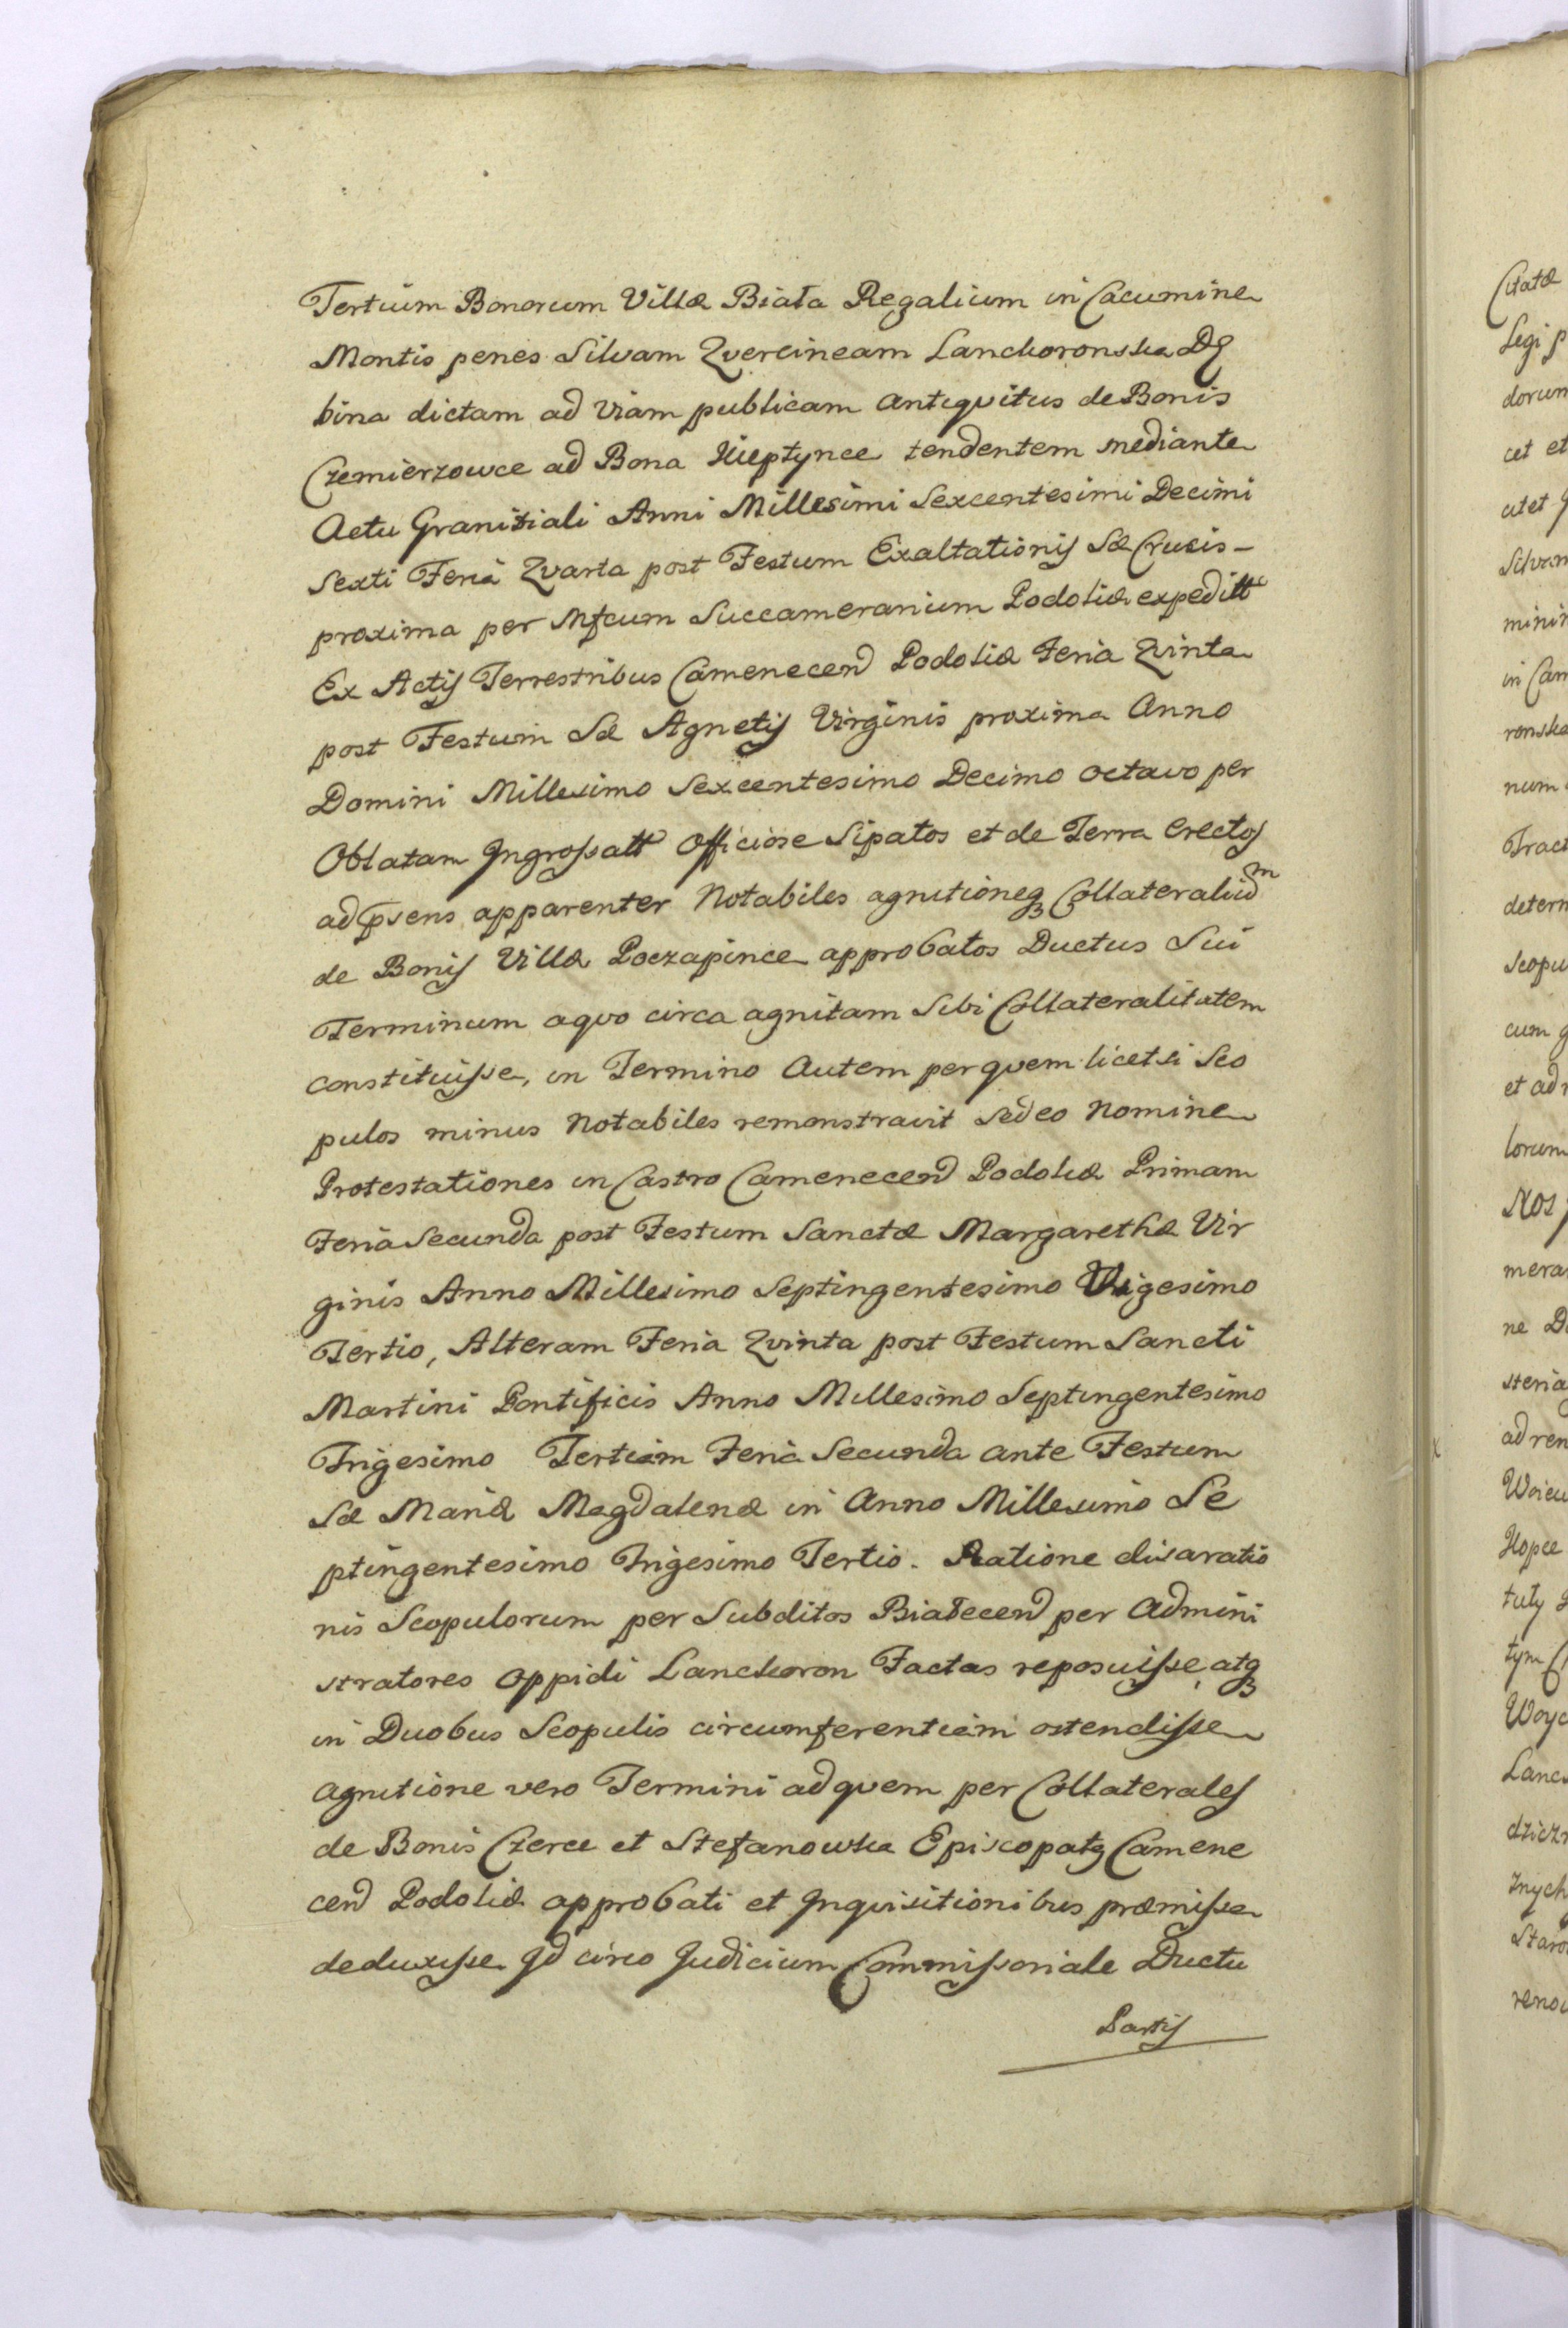 Tertium Bonorum Villæ Biała Regalium in Cacumine
Montis penes Silvam Qvercineam Lanckoronska Dę
bina dictam ad viam publicam antiqvitus de Bonis
Czemierzowce ad Bona Kieptynce tendentem mediante
Actu Granitiali Anni Millesimi Sexcentesimi Decimi
Sexti Feria Qvarta post Festum Exaltationis Sæ Crucis-
proxima per Mfcum Succamerarium Podoliæ expeditt
Ex Actis Terrestribus Camenecen Podoliæ Feria Qvinta
post Festum Sæ Agnetis Virginis proxima Anno
Domini Millesimo Sexcentesimo Decimo octavo per
Oblatam Ingrossatt Officiose Sipatos et de Terra erectos
ad psens apparenter Notabiles agnitioneq Collateralium
de Bonis Villæ Poczapince approbatos Ductus Sui
Terminum aqvo circa agnitam Sibi Collateralitatem
constituisse, in Termino Autem per qvem licet si Sco
pulos minus Notabiles remonstravit sed eo Nomine
Protestationes in Castro Camenecen Podoliæ Primam
Feria Secunda post Festum Sanctæ Margarethæ Vir
ginis Anno Millesimo Septingentesimo Vigesimo
Tertio, Alteram Feria Qvinta post Festum Sancti
Martini Pontificis Anno Millesimo Septingentesimo
Trigesimo Tertiam Feria Secunda ante Festum
Sæ Mariæ Magdalenæ in Anno Millesimo Se
ptingentesimo Trigesimo Tertio. Ratione disaratio
nis Scopulorum per Subditos Białecen per Admini
stratores Oppidi Lanckoron Factas reposuisse, atq
in Duobus Scopulis circumferentiam ostendisse
agnitione vero Termini ad qvem per Collaterales
de Bonis Czerce et Stefanowka Episcopatq Camene
cen Podoliæ approbati et Inqvisitionibus præmissa
deduxisse Id circo Judicium Commissoriale Ductu
Partis
Citatæ
Legi p
dorum
cet et
utet
Silvam
minim
in Cam
ronska
num
Tract
determ
Scopu
cum g
et ad
lorum
NOS
mera
ne D
steria
ad ren
Kopce
tuly
tym
Woyc
Lanc
dzicz
znych
Staro
reno